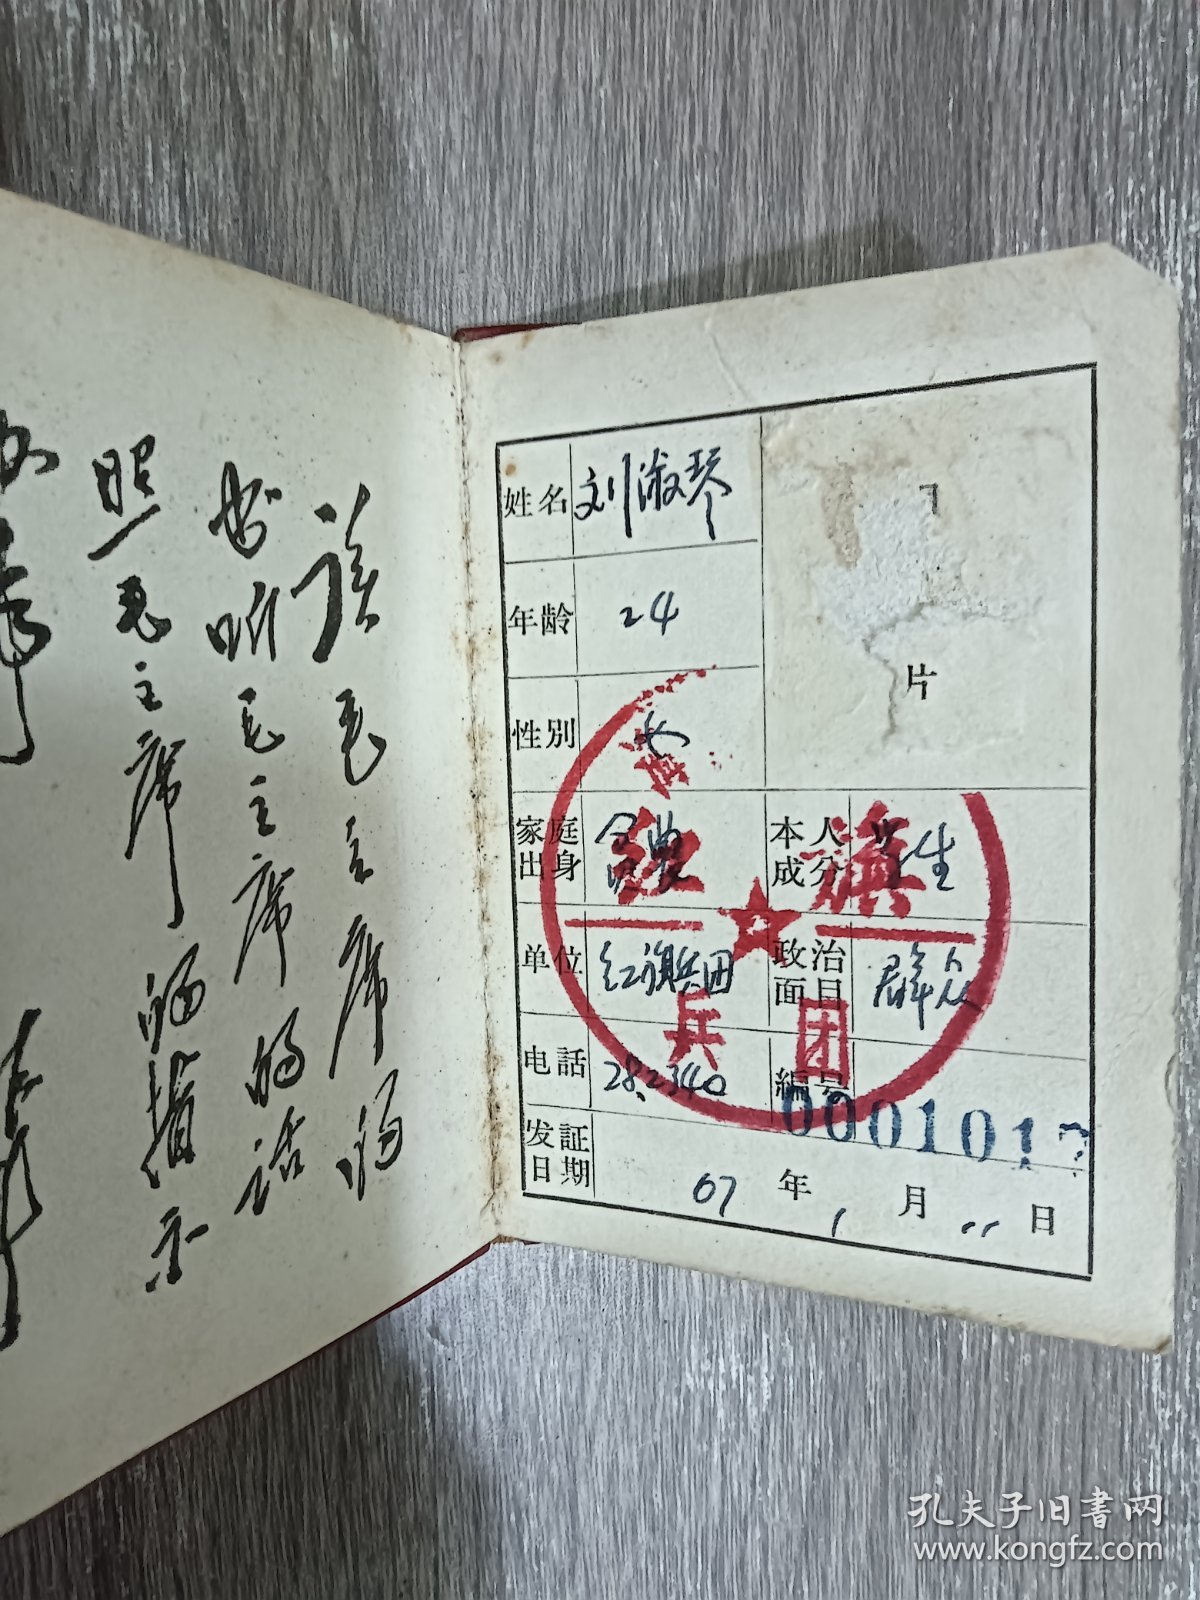 读毛主席的
书听毛主席的话
照毛主席的指示
办事
姓名 刘淑琴
年龄 24
性别 女
片
家庭出身 贫农
本人成分 学生
单位 红旗兵团
政治面目 群众
电話 28.2340
編号 000101
发証日期 67年1月 日
红旗
兵团
孔夫子旧书网
www.kongfz.com